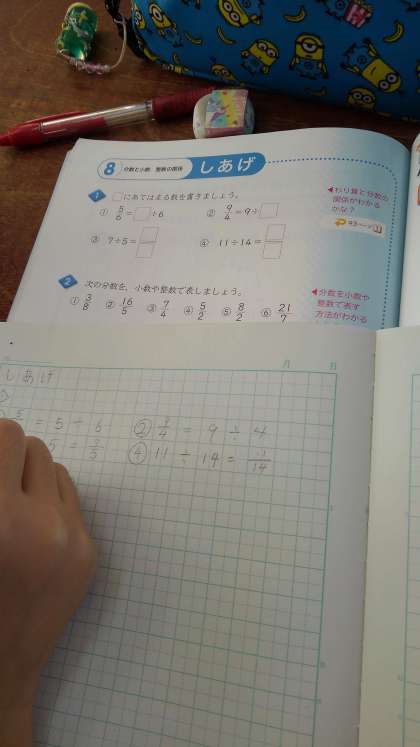 8 分数と小数、整数の関係 しあげ
1 □にあてはまる数を書きましょう。
① 5/6=□÷6 ② 9/4=9÷□
③ 7÷5=□/□ ④ 11÷14=□/□
◀わり算と分数の
関係がわかる
かな？
2 次の分数を、小数や整数で表しましょう。
① 3/8 ② 16/5 ③ 7/4 ④ 5/2 ⑤ 8/2 ⑥ 21/7
◀分数を小数や
整数で表す
方法がわかる
月 日
しあげ
= 5 ÷ 6 ② 9/4 = 9 ÷ 4
④ 11 ÷ 14 = 11/14